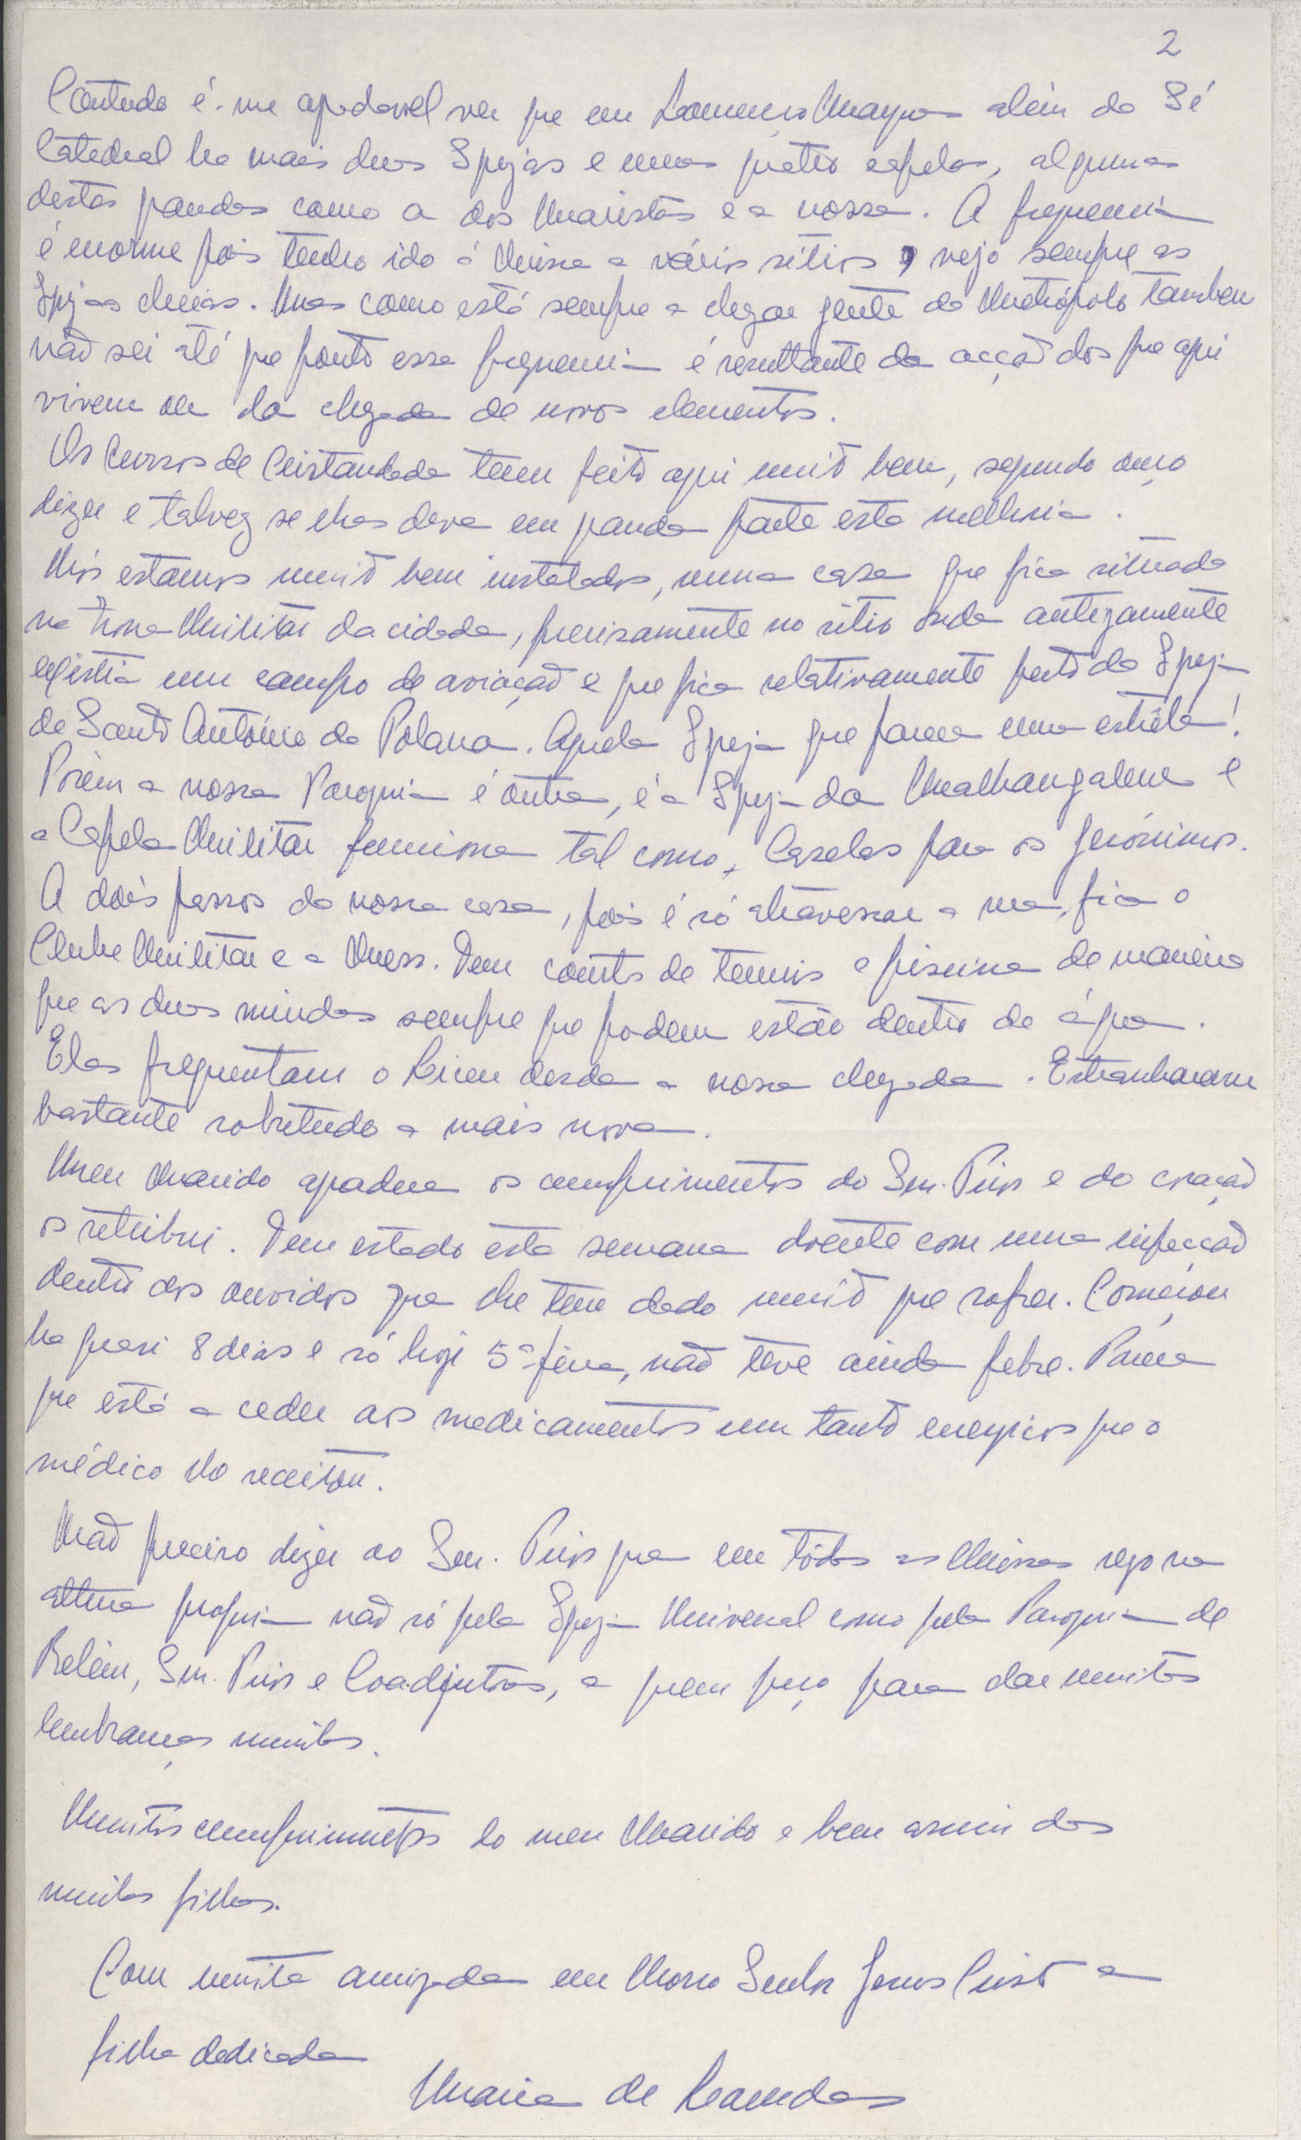 2
Contudo é-me agradavel ver que em Lourenço Marques além da Sé
Catedral ha mais duas Igrejas e umas quatro capelas, algumas
destas grandes como a dos Maristas e a nossa. A frequencia
é enorme pois tenho ido á Missa a vários sitios, vejo sempre as
Igrejas cheias. Mas como está sempre a chegar gente da Metrópole tambem
não sei até que ponto essa frequencia é resultante da acção dos que aqui
vivem ou da chegada de novos elementos.
Os Cursos de Cristandade teem feito aqui muito bem, segundo ouço
dizer e talvez se lhes deva em grande parte esta melhoria.
Nós estamos muito bem instalados, numa casa que fica situada
na zona Militar da cidade, precisamente no sitio onde antigamente
existia um campo de aviação e que fica relativamente perto da Igreja
de Santo António da Polana. Aquela Igreja que parece uma estrêla!
Porém a nossa Paroquia é outra, é a Igreja da Malhangalene e
a Capela Militar funciona tal como, Caselas para os Jerónimos.
A dois passos da nossa casa, pois é só atravessar a rua, fica o
Clube Militar e a Mess. Tem courts de tennis e piscina de maneira
que as duas miudas sempre que podem estão dentro de água.
Elas frequentam o Liceu desde a nossa chegada. Estranharam
bastante sobretudo a mais nova.
Meu Marido agradece os cumprimentos do Snr. Prior e do coração
os retribui. Tem estado esta semana doente com uma infecção
dentro dos ouvidos que lhe tem dado muito que sofrer. Começou
ha quasi 8 dias e só hoje 5ª feira, não teve ainda febre. Parece
que está a ceder aos medicamentos um tanto energicos que o
médico lhe receitou.
Não preciso dizer ao Snr. Prior que em tôdas as Missas rezo na
altura propria não só pela Igreja Universal como pela Paroquia de
Belém, Snr. Prior e Coadjutores, a quem peço para dar muitas
lembranças minhas.
Muitos cumprimentos do meu Marido e bem assim das
minhas filhas.
Com muita amizade em Nosso Senhor Jesus Cristo a
filha dedicada
Maria de